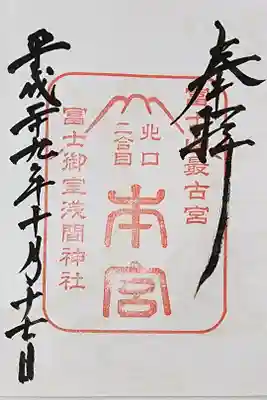 奉拝
富士山最古宮
北口
二合目
本宮
富士御室浅間神社
平成二十九年十月十七日